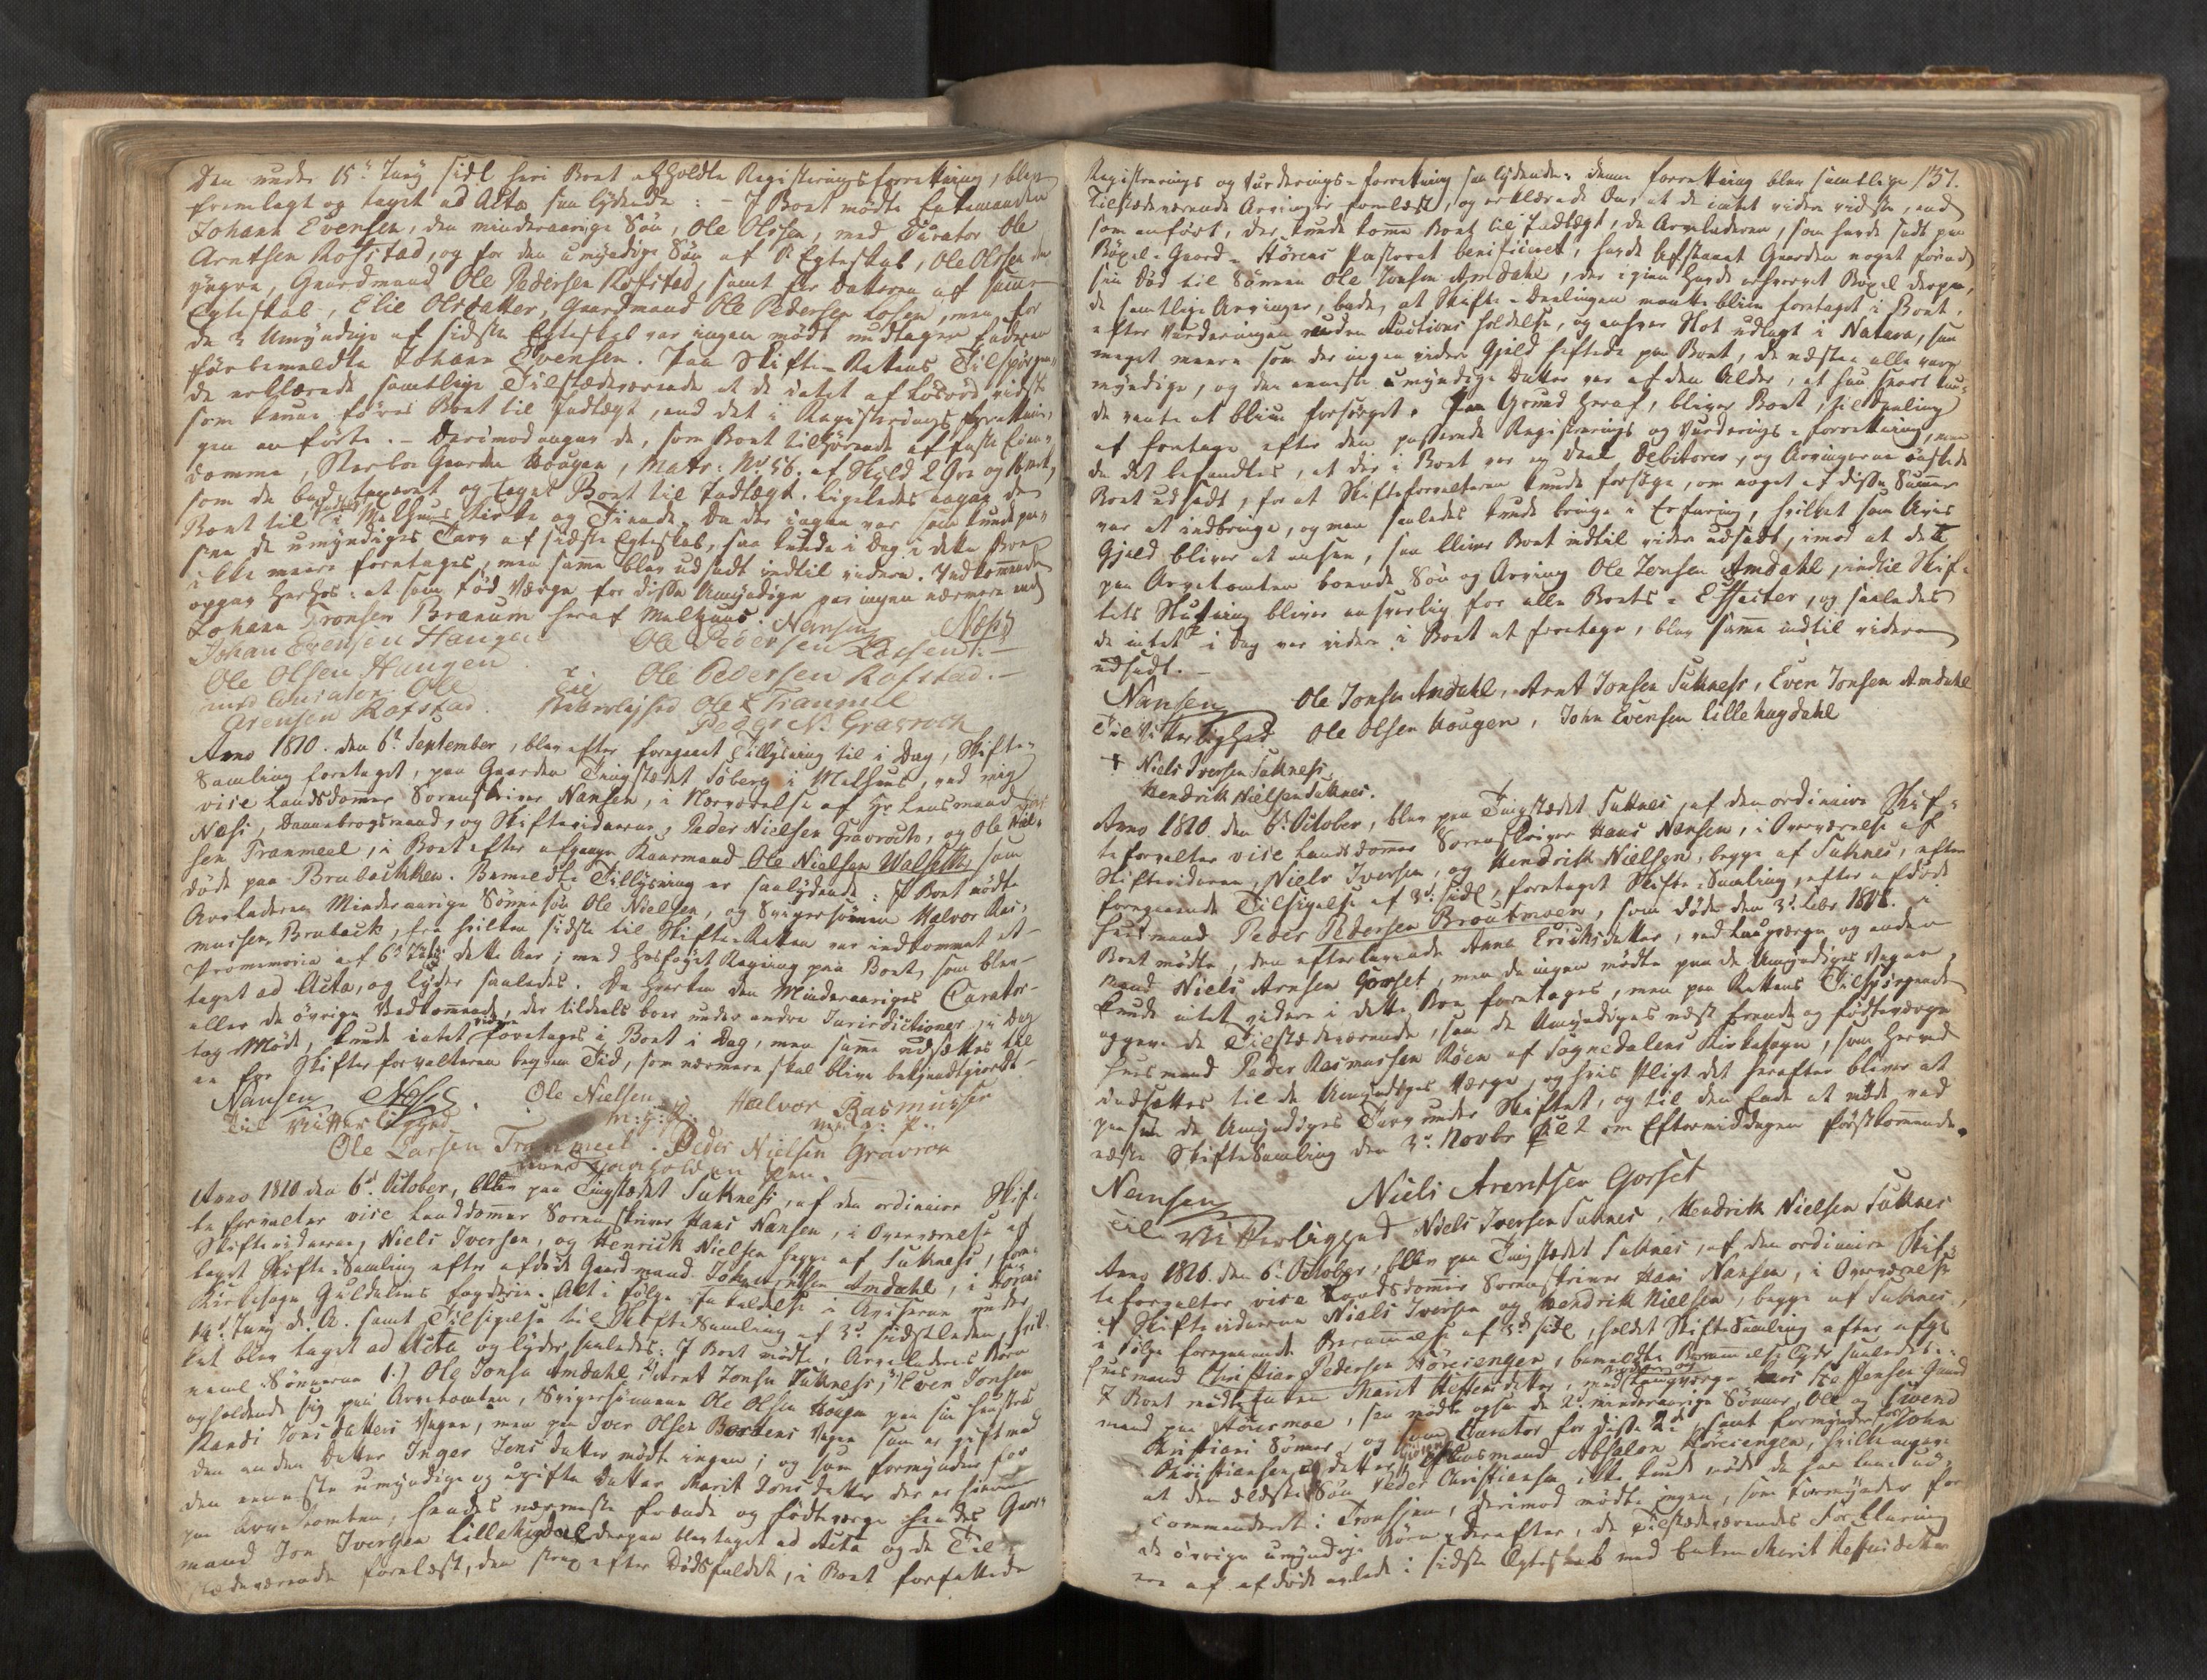 Den under 15de Juny sidl heri Boet afholdte Registreringsforretning, blev
fremlagt og taget ad Acta saa lydende: - I Boet mødte Enkemanden
Johann Evensen, den minderaarige Søn, Ole Olssen, med Curator Ole
Arntsen Rofstad, og for den umyndige Søn af Egteskab, Ole Olssen den
yngre, Gaardmand Ole Pedersen Rofstad, samt for Datteren af samme
Egteskab, Elie Olsdatter, Gaardmand Ole Pedersen Losen, men for
de 3 Umyndige af sidste Egteskab var ingen mødt undtagen Faderen
førbemeldte Johann Evensen. Paa Skifte-Rettens Tilspørgen-
de erklærede samtlige Tilstædeværende at de intet af Løsøre vidste
som kunde føres Boet til Indtægt, end det i Registerings forretnin-
gen anførte. - Derimod angav de, som Boet tilhørende af faste Eien-
domme, Gaarden Hougen, Matr: No 56. af Skyld 2 Øre og
som de bad taxeret og taget Boet til Indtægt. Ligeledes angav de
Boet til i Melhuus Kirke og Tiende. Da der ingen var som kunde paa-
see de umyndiges Tarv af sidste Egteskab, saa kunde i Dag i dette Boe
ikke meere foretages, men samme blev udsadt indtil videre. Vedkommende
opgav herhos: at som fød Værge for disse Umyndige var ingen nærmere end
Johann Tronsen Branum heraf Melhuus. Nansen Næss
Johan Evensen Haugen Ole Pedersen Losen
Ole Olsen Haugen Ole Pedersen Rofstad.
med Curator Ole Til
Arensen Rofstad. Vitterlighed Ole Tranmæl
Peder N. Gravrock
Anno 1810. den 6te September, blev efter foregaaet Tillysning til i Dag, Skifte-
Samling foretaget, paa Gaarden Tingstædet Søberg i Melhuus, ved mig
vice Landsdommer Sorenskriver Nansen, i Nærværelse af Hr Lensmand
Næss, Dannebrogsmand, og Skiftevidnerne, Peder Nielsen Gravrock, og Ole
sen Tranmeel, i Boet efter afgangne Kaarmand Ole Nielsen Walsette som
døde paa Brubachken. Bemeldte Tillysning er saalydende: I Boet mødte
Arveladeren Minderaarige Sønnesøn Ole Nielsen, og Svigersønnen Halvor Ras-
mussen Brubach, fra hvilken sidste til Skifte-Retten var indkommet et
Promemoria af 6te dette Aar; med hosføyet Regning paa Boet, som blev
taget ad Acta, og lyder saaledes. Da hverken den Minderaariges Curator
eller de øvrige Vedkommende, der tildeels boer under andre Jurisdictioner, i Dag
tog Møde, kunde intet videre foretages i Boet i Dag, men samme udsættes til
en for Skifteforvalteren beqvem Tid, som nærmere skal blive bekjendtgjordt.
Nansen Næss. Ole Nielsen Halvor Rasmussen
Til Vitterlighed m: f: P: m: f: P:
Ole Larsen Tranmeel. Peder Nielsen Gravrok
med paaholden Pen.
Anno 1810 den 6te October, blev paa Tingstædet Suknæss, af den ordinaire Skif-
te forvalter vice Landdommer Sorenskriver Hans Nansen, i Overværelse af
Skiftevidnerne, Niels Iversen, og Henrick Nielsen begge af Suknæss, fore-
taget Skifte-Samling efter afdøde Gaardmand John Amdahl, i Hørens
Kirkesogn Guldalens fogderie. Alt i følge indkaldelse i Aviserne under
14de Juny d. A. samt Tilsigelse til Skifte-Samling af 3de sidstleden, hvil-
ket blev taget ad Acta og lyder saaledes: I Boet mødte, Arveladerens Børn
neml: Sønnerne 1.) Ole Jonsen Amdahl, 2) Arnt Jonsen Suknæss, 3) Even Jonsen
opholdende sig paa Arvetomten, Svigersønnen Ole Olsen Hougen paa sin Hustrue
Randi Jonsdatters Vegne, men paa Iver Olsen Bortens Vegne som er gift med
den anden Datter Inger Jonsdatter mødte ingen; og som Formynder for
den eeneste umyndige og ugifte Datter Marit Jonsdatter der er hiemme
paa Arvetomten, hendes nærmeste Frænde og fødteværge hendes Gaard-
mand Jon Iversen Lillehugdal derpaa blev taget ad Acta og de Til-
stædeværende forelæst, den strax efter Dødsfaldet, i Boet forfattede
Registrerings og Vurderings-Forretning saa lydende: denne Forretning blev samtlige 137.
Tilstædeværende Arvinger forelæst, og erklærede de, at de intet videre vidste, end
som anført, der kunde komme Boet til Indtægt, da Arveladeren, som havde sadt paa
Bøxel-Gaard Hørens Pastorat beneficeret, havde afstaaet Gaarden noget førend
sin Død til Sønnen Ole Jonsen Amdahl, der igien havde erhvervet Bøxel derpaa,
de samtlige Arvinger, bade, at Skifte-Deelingen maatte blive foretaget i Boet,
efter Vurderingen uden Auctions holdelse, og enhver Lod udlagt i Natura, saa
meget meere som der ingen videre Gjæld heftede paa Boet, de næsten alle vare
myndige, og den eeneste umyndige Datter var af den Alder, at hun snart kun-
de vente at blive forsørget. Paa Grund heraf, bliver Boet, til Deeling
at foretage efter den passerede Registrerings og Vurderings-forretning, men
da det befandtes, at der i Boet var en Deel Debitorer, og Arvingerne ønskede
Boet udsadt, for at Skifteforvalteren kunde forsøge, om noget af disse Summer
var at indbringe, og man saaledes kunde bringe i Erfaring, hvilket som uvis
Gjæld bliver at ansee, saa bliver Boet indtil videre udsadt, imod at den
paa Arvetomten boende Søn og Arving Ole Jonsen Amdahl, indtil Skif-
tets Slutning bliver ansvarlig for alle Boets Effecter, og saaledes
da intet i Dag var videre i Boet at foretage, blev samme indtil videre
udsadt. -
Nansen Ole Jonsen Amdahl, Arnt Jonsen Suknæss, Even Jonsen Amdahl
Til Vitterlighed Ole Olsen Hougen, John Evensen Lillehugdahl
Niels Iversen Suknæss,
Hendrik Nielsen Suknes.
Anno 1810. den 6te October, blev paa Tingstædet Suknes, af den ordinaire Skif-
te forvalter vice Landsdommer Sorenskriver Hans Nansen, i Overværelse af
Skiftevidnerne, Niels Iversen, og Hendrik Nielsen, begge af Suknes, efter
foregaaende Tilsigelse af 3de sidl, foretaget Skifte-Samling, efter afdøde
Huusmand Peder Pedersen Broutmoen, som døde den 3de Febr 1810. i
Boet mødte, den efterlevende Anne Ericksdatter, ved Laugværge og anden
Mand Niels Arnsen Gorset, men da ingen mødte paa de Umyndiges Vegne,
kunde intet videre i dette Boe foretages, men paa Rettens Tilspørgende
opgave de Tilstædeværende, som de Umyndiges næste Frende og fødteværge
Huusmand Peder Rasmussen Røen af Sognedalens Kirkesogn, som herved
indsættes til de Umyndiges Værge, og hvis Pligt det herefter bliver at
paasee de Umyndiges Tarv under Skiftet, og til den Ende at møde ved
næste Skiftesamling den 3de Novbr Kl 2 om Eftermiddagen førstkommende.
Nansen Niels Arentsen Gorset
Til Vitterlighed Niels Iversen Suknes, Hendrik Nielsen Suknes
Anno 1810. den 6te October, blev paa Tingstædet Suknes, af den ordinaire Skif-
te forvalter vice Landsdommer Sorenskriver Hans Nansen, i Overværelse
af Skiftevidnerne Niels Iversen og Hendrik Nielsen, begge af Suknes,
i følge foregaaende Berammelse af 3de sidl, holdet Skifte-Samling efter afg:
Huusmand Christian Pedersen Hørеrengen, bemeldte Berammelse lyder saaledes:
I Boet mødte Enken Marit Steffensdatter, med Laugværge Lars Steffensen Gaard
mand paa Hørsmoe, saa mødte ogsaa de 2de minderaarige Sønner, Ole og Svend
Christians Sønner og som Curator for disse 2de, samt formynder for John
Christiansen Huusmand Absalon Hørerengen, hvilke angav
at den ældste Søn Peder Christiansen ikke kunde møde da han var ud-
commanderet i Tronhjem, derimod mødte ingen, som Formynder for
de øvrige umyndige Børn, derefter, de Tilstædeværendes Forklaring
ere af afdøde avlede i sidste Egteskab med Enken Marit Steffensdatter